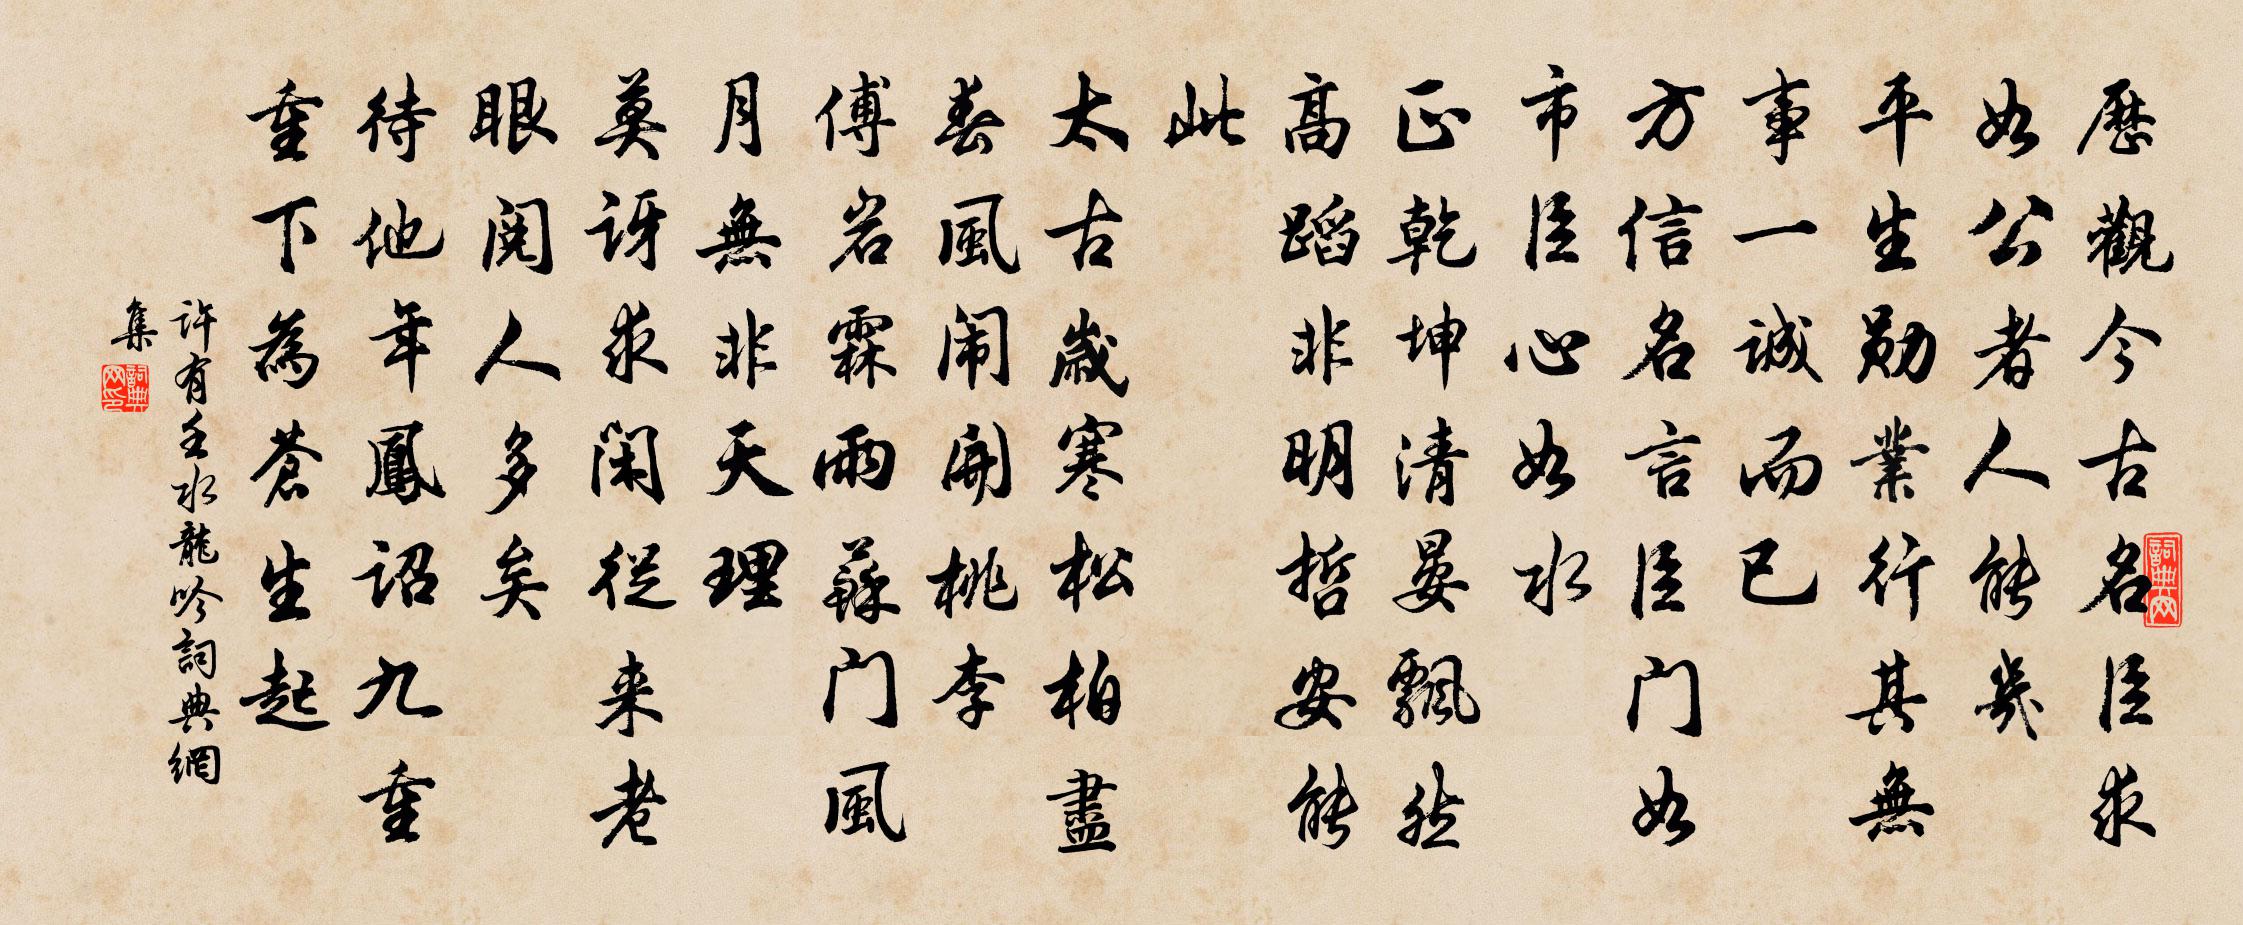 歷觀今古名臣求
如公者人能幾
平生勛業行其無
事一誠而已
方信名言臣门如
市臣心如水
正乾坤清晏飄然
高蹈非明哲安能
此
太古歲寒松柏盡
春風闹開桃李
傅岩霖雨蘇门風
月無非天理
莫訝求閑從来老
眼閱人多矣
待他年鳳詔九重
重下為蒼生起
許有壬水龍吟詞典網
集
詞典网
詞典网印